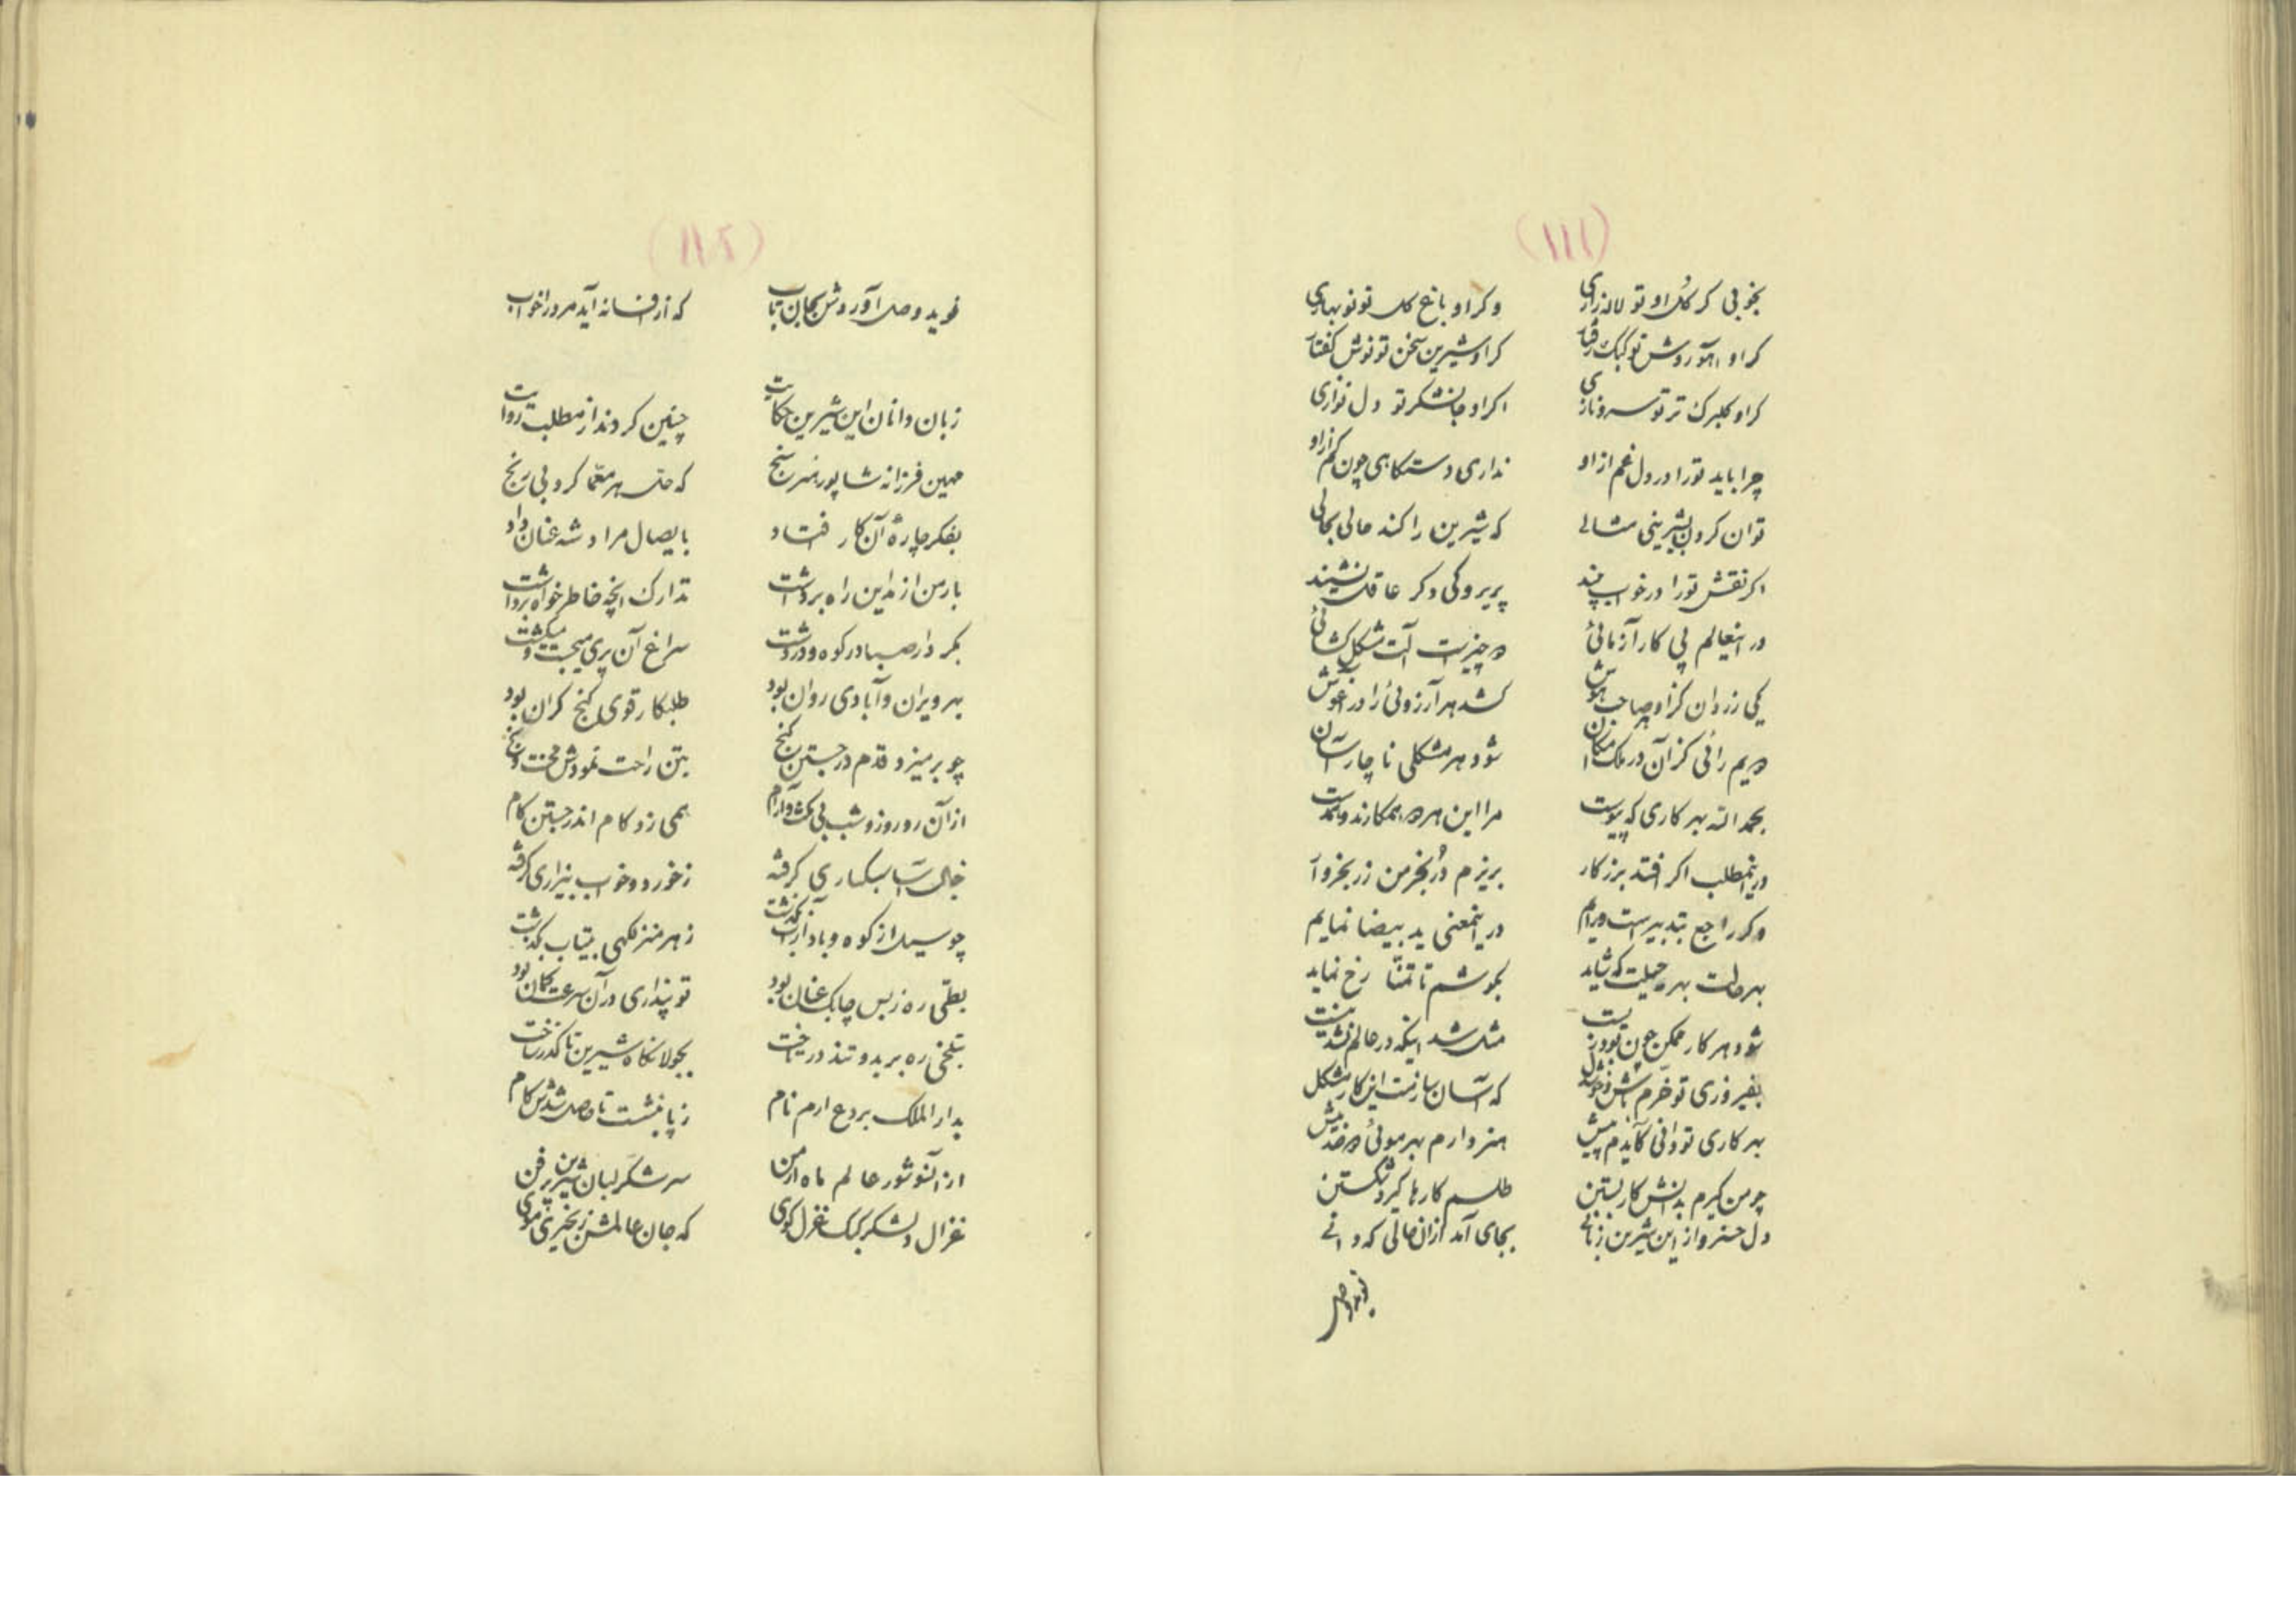 (۱۱۱)
بخوبی گر گل او تو لاله‌زاری وگر او باغ گل تو نوبهاری
گر او آهو روش تو کبک رفتار گر او شیرین سخن تو نوش گفتار
گر او گلبرگ تر تو سرو نازی اگر او جان‌شکر تو دل‌نوازی
چرا باید تو را در دل غم از او نداری دستگاهی چون کم از او
توان کردن بشیرینی مثالی که شیرین را کند حالی بحالی
اگر نقش تو را در خواب بیند پریرو کی دگر عاقل نشیند
در اینعالم پی کار آزمائی دو چیز است آلت مشکل گشائی
یکی زر دان کز او هر صاحب هوش کشد هر آرزوئی را در آغوش
دویم رائی کز آن در ملک امکان شود هر مشکلی ناچار آسان
بحمدالله بهر کاری که پیوست مرا این هر دو همکارند و همدست
در اینمطلب اگر افتد بزر کار بریزم در بخرمن زر بخروار
وگر راجع بتدبیر است و رایم در اینمعنی ید بیضا نمایم
بهر حالت بهر حیلت که شاید بکوشم تا تمنا رخ نماید
شود هر کار ممکن چون تو را زیست مثل شد اینکه در عالم نشد نیست
بفیروزی تو خرم باش و خوشدل که آسان سازمت این کار مشکل
بهر کاری تو دانی کآیدم پیش هنر دارم بهر موئی دو صد بیش
چو من گیرم بدانش کار بستن طلسم کارها گیرد شکستن
دل خسرو از این شیرین زبانی بجای آمد از آن حالی که دانی
نوید وصل
(۱۱۲)
نوید وصل آوردش بجان تاب که از افسانه آید مرد را خواب
زبان دانان این شیرین حکایت چنین کردند از مطلب روایت
مهین فرزانه شاپور هنر سنج که حل هر معما کرد بی رنج
بفکر چاره آن کار افتاد بایصال مراد شه عنان داد
بارمن از مداین راه برداشت تدارک آنچه خاطر خواه برداشت
بکردار صبا در کوه و در دشت سراغ آن پری میجست و میگشت
بهر ویران و آبادی روان بود طلبکار قوی گنج گران بود
چو بر میزد قدم در جستن گنج بتن راحت نمودش محنت و رنج
از آن رو روز و شب بی مکث و آرام همی زد گام اندر جستن کام
خیالش تا سبکساری گرفته ز خورد و خواب بیزاری گرفته
چو سیل از کوه و باد از آب بگذشت ز هر منزلگهی بیتاب بگذشت
بطی ره ز بس چابک عنان بود تو پنداری در آن سرعت کمان بود
بتلخی ره برید و تند در تاخت بجولانگاه شیرین تا گذر ساخت
بدارالملک بردع ارم نام ز پا ننشست تا حاصل شدش کام
از آنسو شور عالم ماه ارمن سر شکر لبان شیرین پر فن
غزال دلشکر کبک غزل گوی که جان عالمش زنجیری موی